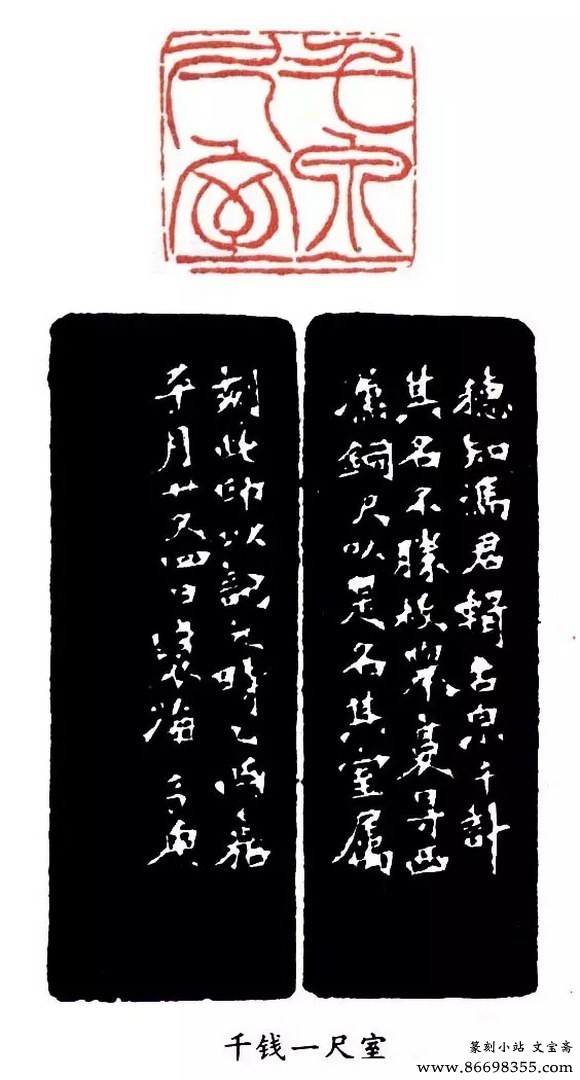 千泉一尺室
知馮君輯古泉千計
其名不勝枚舉更得西
漢銅尺以是名其室屬
刻此印以記之時乙酉嘉
平月廿又四日
千钱一尺室
篆刻小站 文宝斋
www.86698355.com